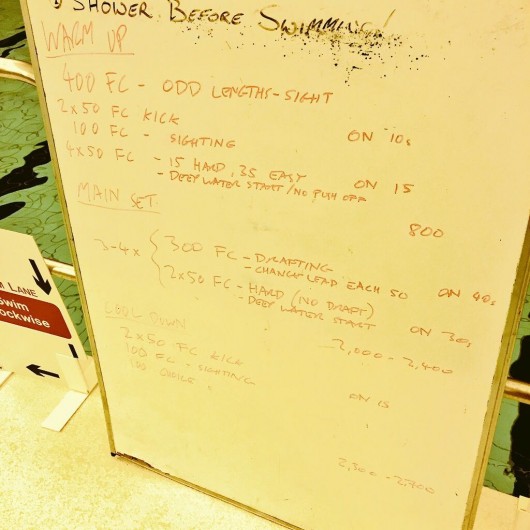 SHOWER BEFORE SWIMMING!
WARM UP
400 FC - ODD LENGTHS - SIGHT
2x50 FC KICK
100 FC - SIGHTING ON 10s
4x50 FC - 15 HARD, 35 EASY ON 15
- DEEP WATER START / NO PUSH OFF
800
MAIN SET
3-4x { 300 FC - DRAFTING
- CHANGE LEAD EACH 50 ON 40s
2x50 FC - HARD (NO DRAFT)
- DEEP WATER START ON 30s
2,000 - 2,400
COOL DOWN
2x50 FC KICK
100 FC - SIGHTING
100 CHOICE ON 15
LANE
Swim
ockwise